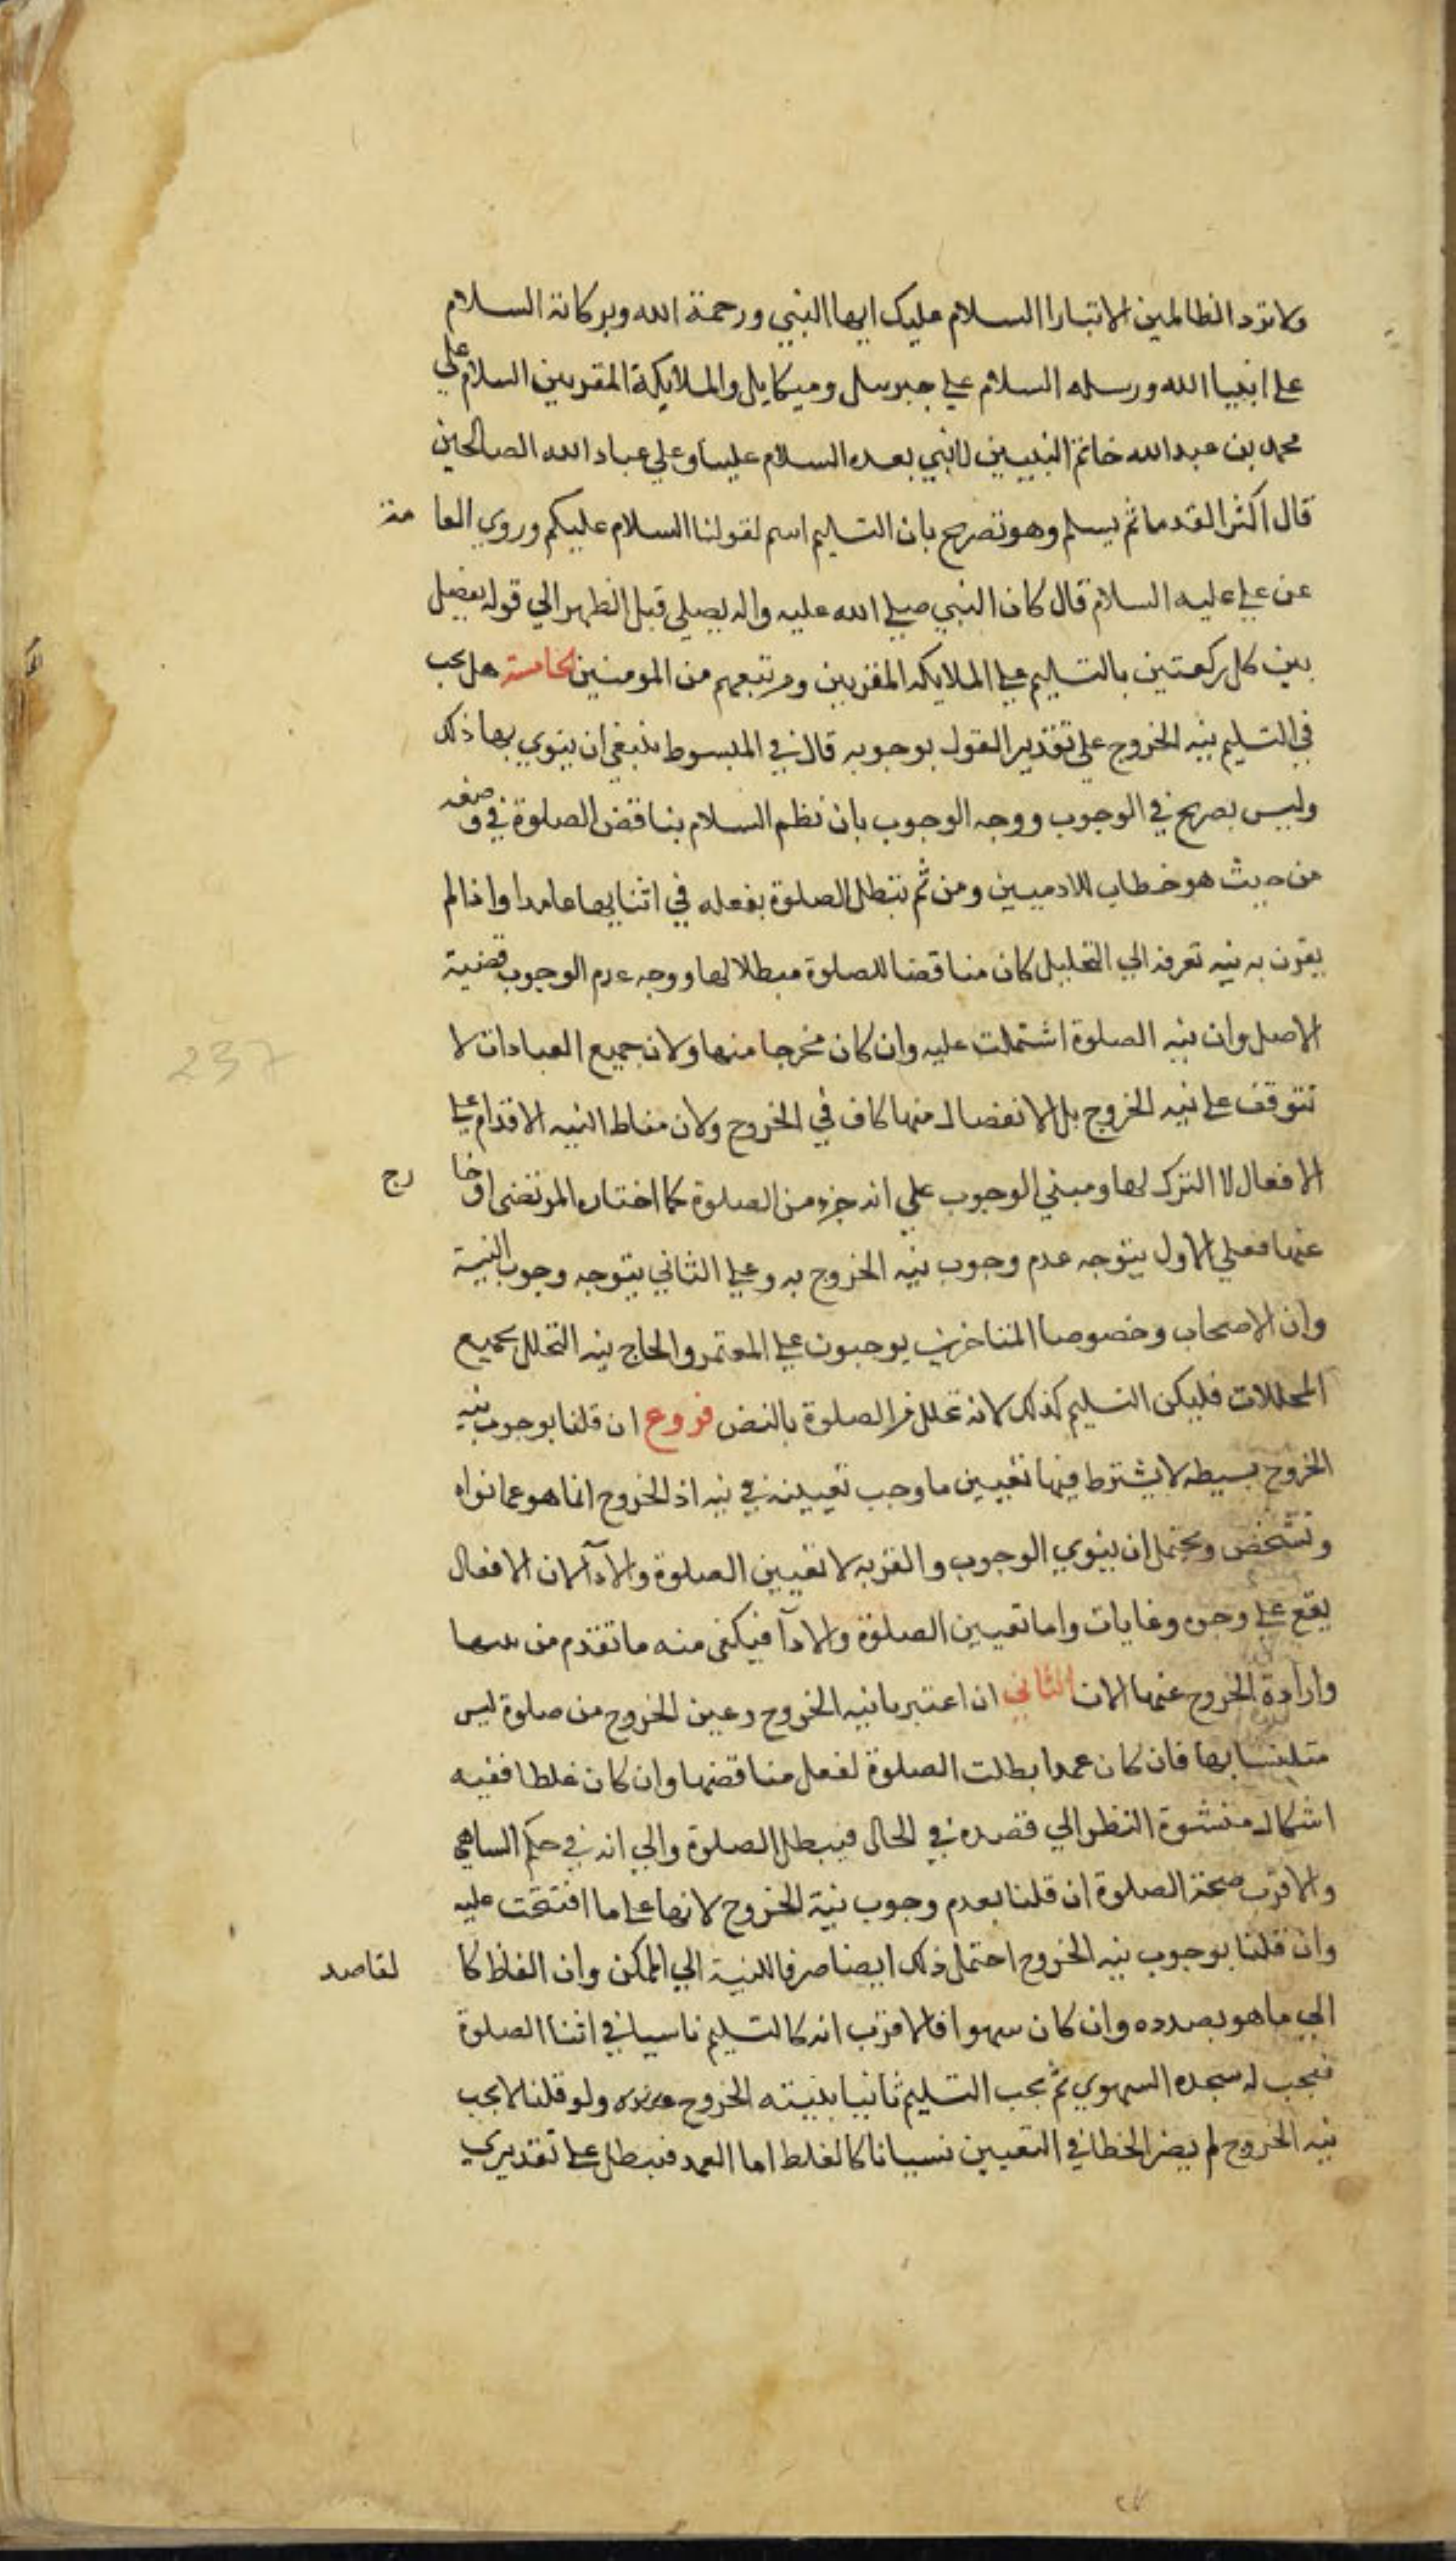 ولا تزد الظالمين الا تبارا السلام عليك ايها النبي ورحمة الله وبركاته السلام
على انبيا الله ورسله السلام على جبرييل وميكاييل والملايكة المقربين السلام علي
محمد بن عبدالله خاتم النبيين لا نبي بعده السلام علينا وعلي عباد الله الصالحين
قال اكثر القدما ثم يسلم وهو تصريح بان التسليم اسم لقولنا السلام عليكم وروي العامة
عن علي عليه السلام قال كان النبي صلى الله عليه واله يصلي قبل الظهر الي قوله يفصل
بين كل ركعتين بالتسليم على الملايكه المقربين ومن تبعهم من المومنين الخامسة هل يجب
في التسليم نيه الخروج علي تقدير القول بوجوبه قال في المبسوط ينبغي ان ينوي بها ذلك
وليس بصريح في الوجوب ووجه الوجوب بان نظم السلام يناقض الصلوة في وضعه
من حيث هو خطاب للادميين ومن ثم تبطل الصلوة بفعله في اثنايها عامدا واذا لم
يقرن به نيه تعرفه الي التحليل كان مناقضا للصلوة مبطلا لها ووجه عدم الوجوب قضية
الاصل وان نيه الصلوة اشتملت عليه وان كان مخرجا منها ولان جميع العبادات لا
تتوقف على نيه الخروج بل الانفصال منها كاف في الخروج ولان مناط النيه الاقدام على
الافعال لا الترك لها ومبني الوجوب علي انه جزء من الصلوة كما اختاره المرتضى او خارج
عنها فعلي الاول يتوجه عدم وجوب نيه الخروج به وعلى الثاني يتوجه وجوب النية
وان الاصحاب وخصوصا المتاخرين يوجبون على المعتمر والحاج نيه التحلل بجميع
المحللات فليكن التسليم كذلك لانه تحلل من الصلوة بالنص فروع ان قلنا بوجوب نيه
الخروج بسيطه لا يشترط فيها تعيين ما وجب تعيينه في نيه اذ الخروج انما هو عما نواه
وتشخص ويحتمل ان ينوي الوجوب والقربه لا تعيين الصلوة والادآ لان الافعال
يقع على وجوه وغايات واما تعيين الصلوة والادآ فيكفي منه ما تقدم من نيتها
وارادة الخروج عنها الان الثاني ان اعتبرنا نيه الخروج وعين الخروج من صلوة ليس
متلبسا بها فان كان عمدا بطلت الصلوة لفعل مناقضها وان كان غلطا ففيه
اشكال منشوة النظر الي قصده في الحال فيبطل الصلوة والي انه في حكم الساهي
والاقرب صحة الصلوة ان قلنا بعدم وجوب نية الخروج لانها على ما افتتحت عليه
وان قلنا بوجوب نيه الخروج احتمل ذلك ايضا صرفا للنية الي الممكن وان الغلط كالقاصد
الي ما هو بصدده وان كان سهوا فالاقرب انه كالتسليم ناسيا في اثنا الصلوة
فيجب له سجده السهوي ثم يجب التسليم ثانيا بنيته الخروج ولو قلنا لا يجب
نيه الخروج لم يضر الخطا في التعيين نسيانا كالغلط اما العمد فيبطل على تقديري
237